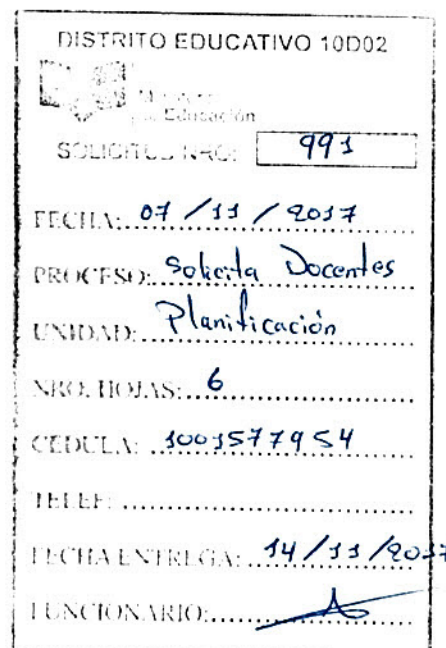 DISTRITO EDUCATIVO 10D02
Ministerio
de Educación
SOLICITUD NRO: 991
FECHA: 07/11/2017
PROCESO: Solicita Docentes
UNIDAD: Planificación
NRO. HOJAS: 6
CEDULA: 1001577954
TELEF:
FECHA ENTREGA: 14/11/2017
FUNCIONARIO: